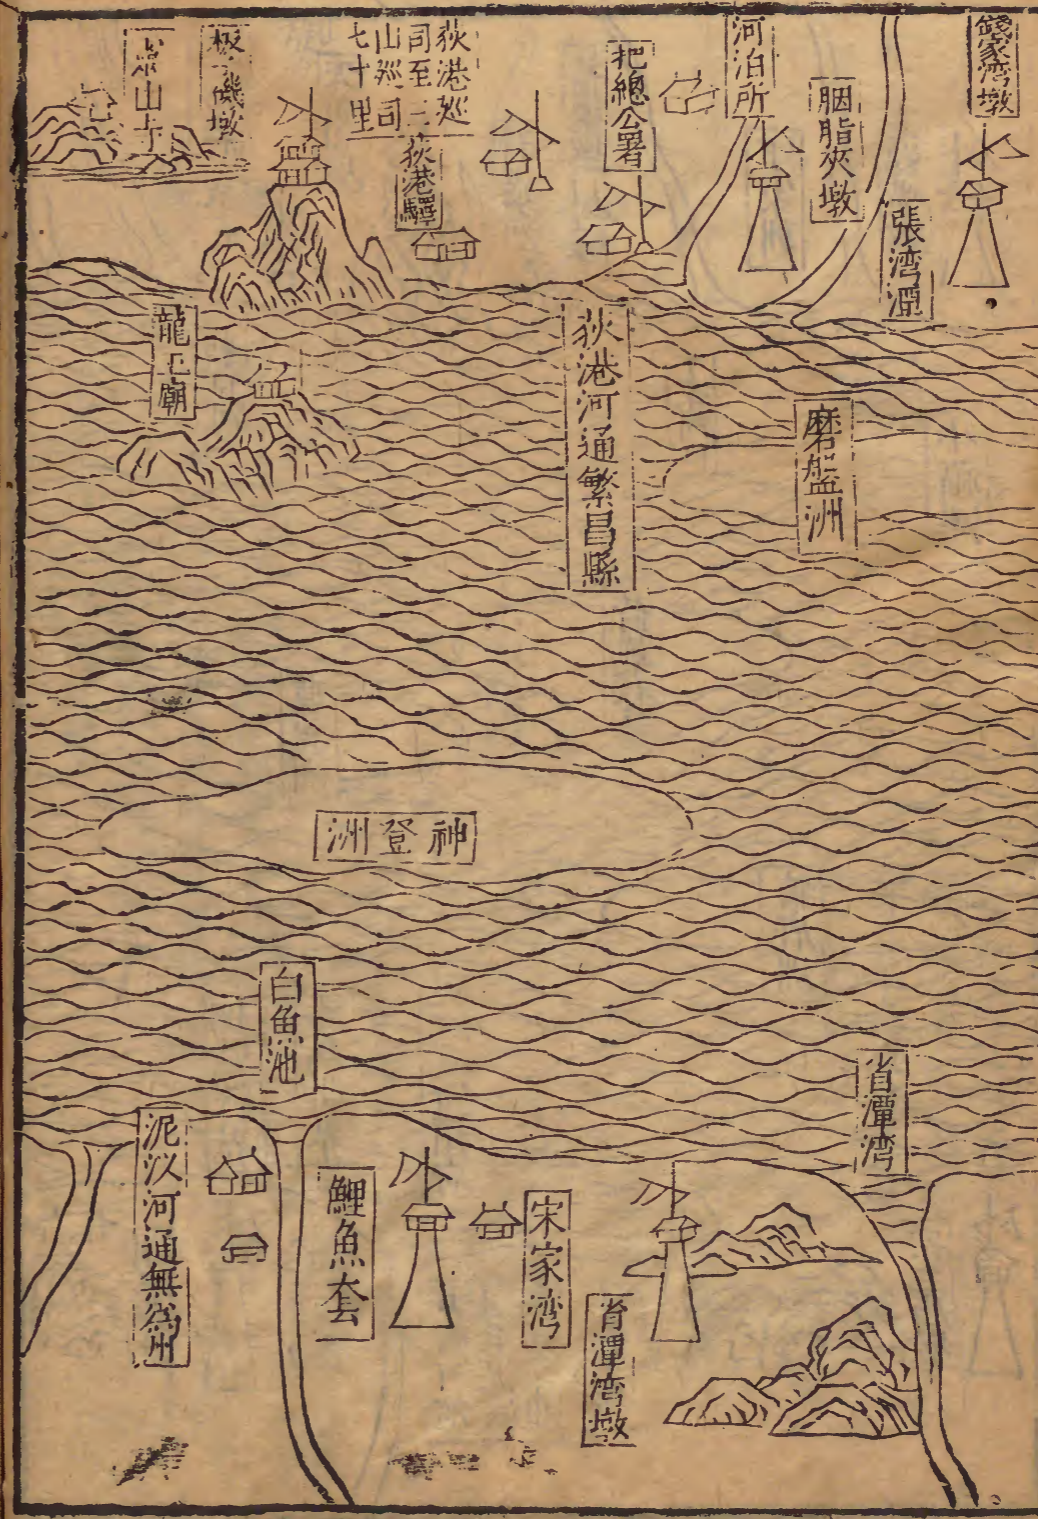 錢家湾墩
張湾潭
胭脂夾墩
河泊所
把總公署
荻港巡
司至三
山巡司
七十里
荻港驛
板磯墩
山寺
龍王廟
荻港河通繁昌縣
磨盤洲
神登洲
白魚池
泥汊河通無為州
鯉魚套
宋家湾
潭湾墩
潭湾